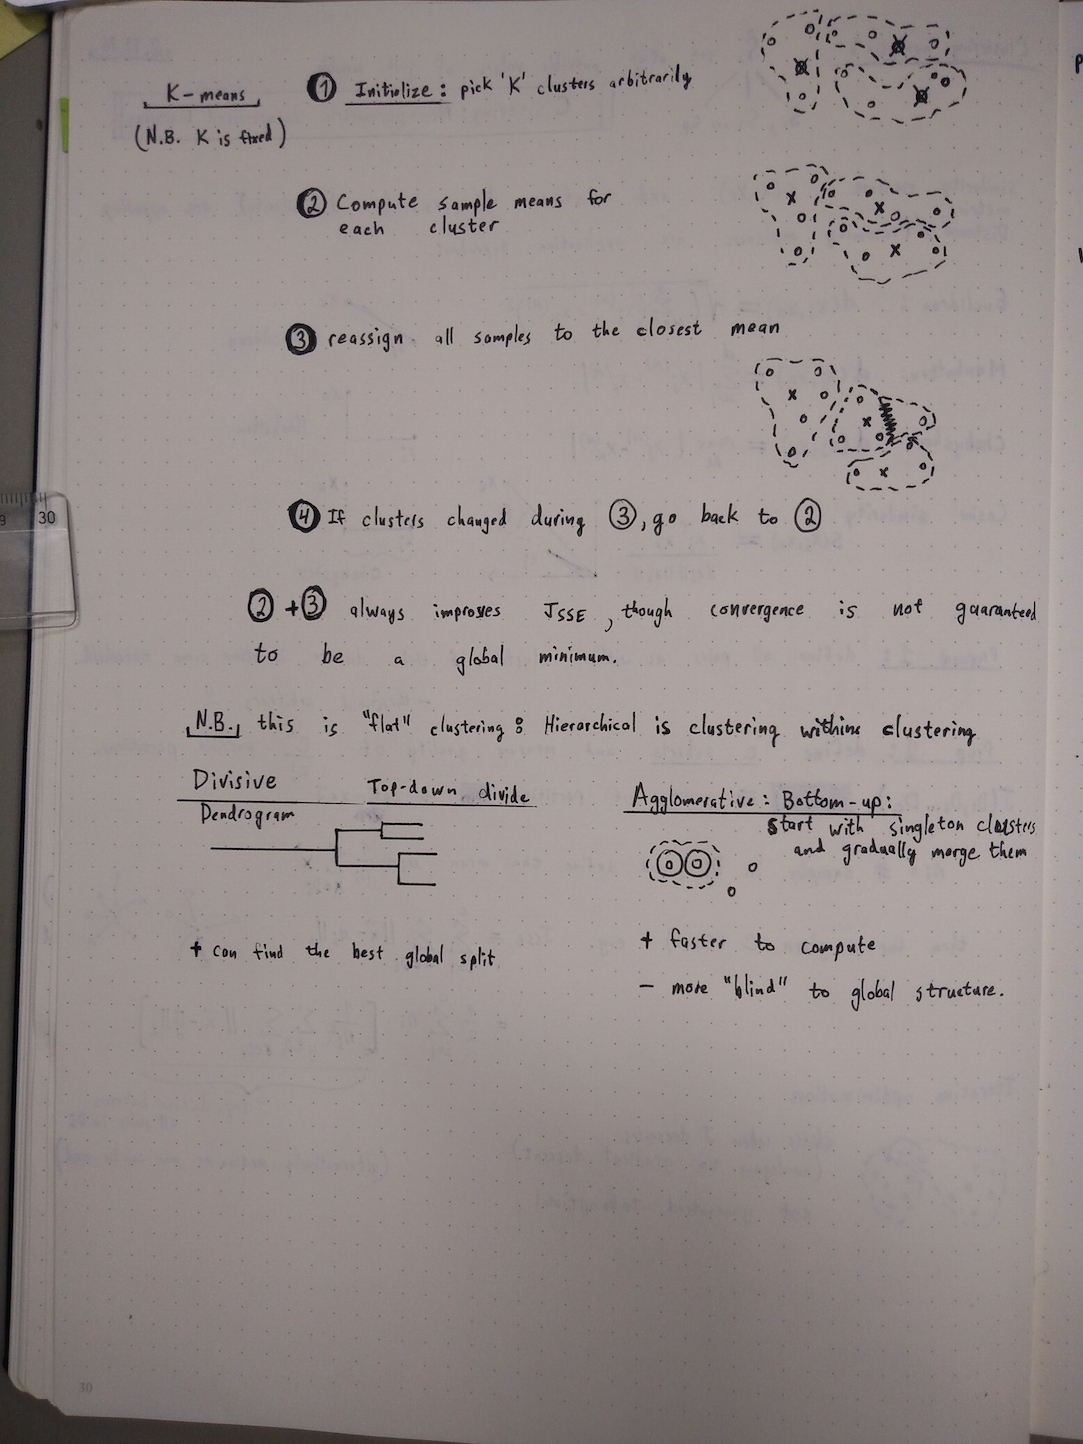 K-means
(N.B. K is fixed)
① Initialize: pick 'K' clusters arbitrarily
② Compute sample means for
each cluster
③ reassign all samples to the closest mean
④ If clusters changed during ③, go back to ②
② + ③ always improves JSSE, though convergence is not guaranteed
to be a global minimum.
N.B. this is "flat" clustering: Hierarchical is clustering within clustering
Divisive Top-down divide
Dendrogram
+ can find the best global split
Agglomerative: Bottom-up:
start with singleton clusters
and gradually merge them
+ faster to compute
- more "blind" to global structure.
30
30